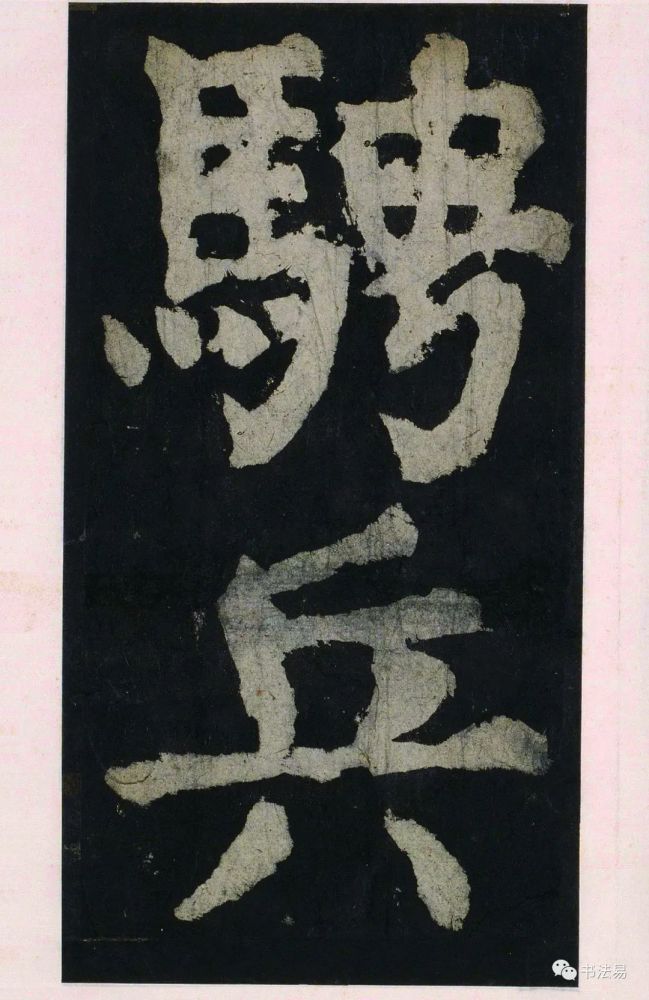 騁兵
书法易